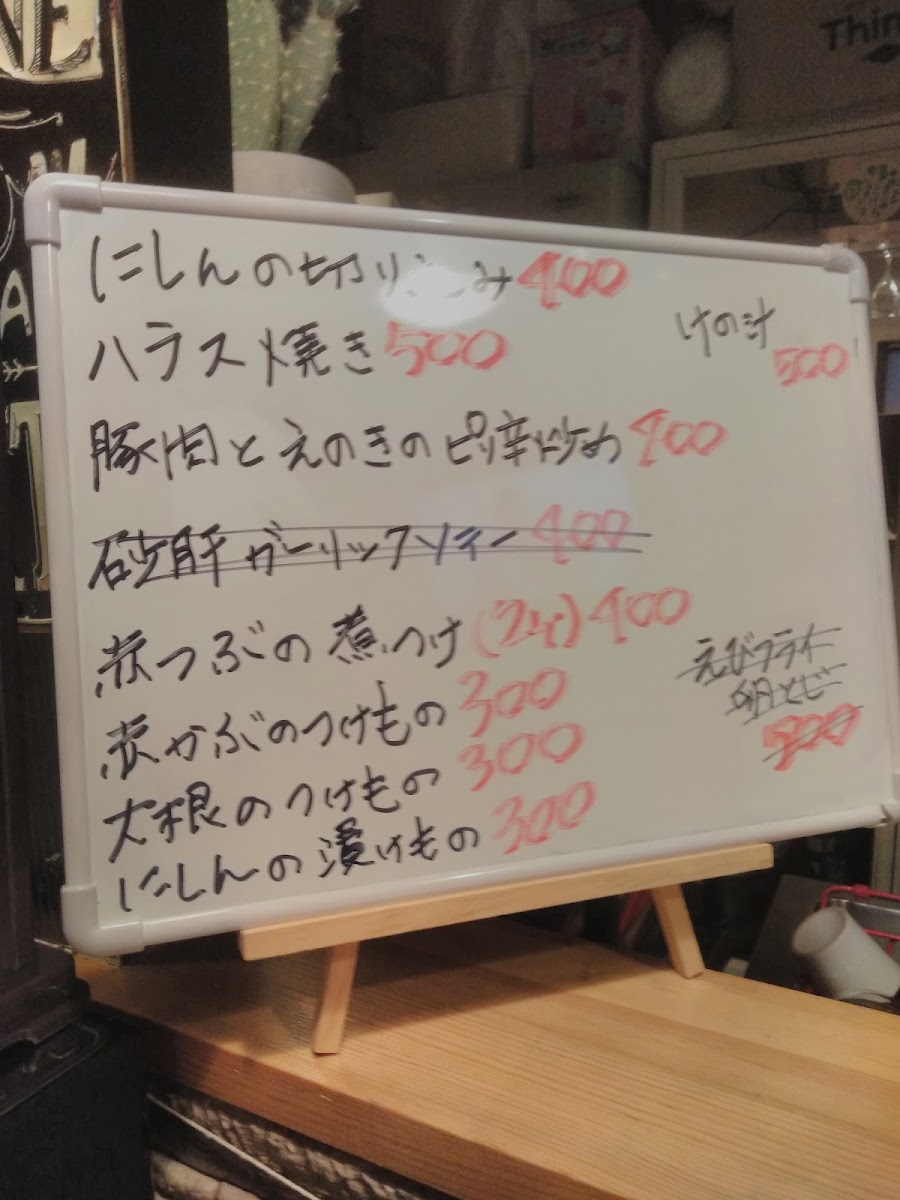 NE
A
T
Thin
にしんの切り込み 400
ハラス焼き 500
けの汁
500
豚肉とえのきのピリ辛炒め 400
砂肝ガーリックソテー 400
赤つぶの煮つけ(2ヶ) 400
赤かぶのつけもの 300
大根のつけもの 300
にしんの漬けもの 300
えびフライ
卵とじ
500